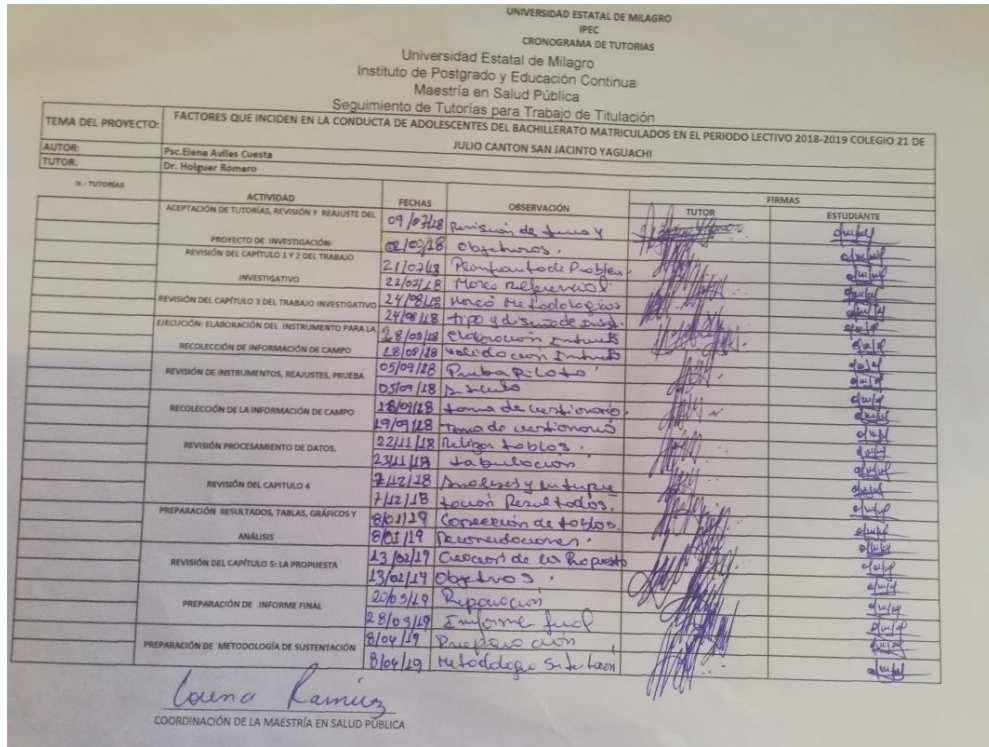 UNIVERSIDAD ESTATAL DE MILAGRO
IPEC
CRONOGRAMA DE TUTORIAS
Universidad Estatal de Milagro
Instituto de Postgrado y Educación Continua
Maestría en Salud Pública
Seguimiento de Tutorías para Trabajo de Titulación
TEMA DEL PROYECTO: FACTORES QUE INCIDEN EN LA CONDUCTA DE ADOLESCENTES DEL BACHILLERATO MATRICULADOS EN EL PERIODO LECTIVO 2018-2019 COLEGIO 21 DE
JULIO CANTON SAN JACINTO YAGUACHI
AUTOR: Psc.Elena Aviles Cuesta
TUTOR: Dr. Holguer Romero
N.- TUTORÍAS ACTIVIDAD FECHAS OBSERVACIÓN FIRMAS
TUTOR ESTUDIANTE
ACEPTACIÓN DE TUTORÍAS, REVISIÓN Y REAJUSTE DEL 09/07/18 Revisión de tema y
PROYECTO DE INVESTIGACIÓN Objetivos.
REVISIÓN DEL CAPÍTULO 1 Y 2 DEL TRABAJO 21/07/18
INVESTIGATIVO 22/07/18 Marco Referencial
REVISIÓN DEL CAPÍTULO 3 DEL TRABAJO INVESTIGATIVO 24/08/18 Marco Metodologico
24/08/18 tipo y diseño de
EJECUCIÓN: ELABORACIÓN DEL INSTRUMENTO PARA LA 28/08/18 elaboración
RECOLECCIÓN DE INFORMACIÓN DE CAMPO 28/08/18 validacion
REVISIÓN DE INSTRUMENTOS, REAJUSTES, PRUEBA 05/09/18 Prueba Piloto
05/09/18
RECOLECCIÓN DE LA INFORMACIÓN DE CAMPO 18/09/18 toma de cuestionario.
19/09/18 Toma de cuestionario
REVISIÓN PROCESAMIENTO DE DATOS. 22/11/18 tablas.
23/11/18 tabulacion
REVISIÓN DEL CAPITULO 4 7/12/18 Analeses y
7/12/18 Resultados.
PREPARACIÓN RESULTADOS, TABLAS, GRÁFICOS Y 8/01/19 Corrección de tablas.
ANÁLISIS 8/01/19 Recomendaciones.
REVISIÓN DEL CAPÍTULO 5: LA PROPUESTA 13/02/19 Creacion de la Propuesta
13/02/19 Objetivos.
PREPARACIÓN DE INFORME FINAL 20/03/19 Reparación
28/03/19 Informe final
PREPARACIÓN DE METODOLOGÍA DE SUSTENTACIÓN 8/04/19 Preparación
8/04/19 Metodologia
COORDINACIÓN DE LA MAESTRÍA EN SALUD PÚBLICA